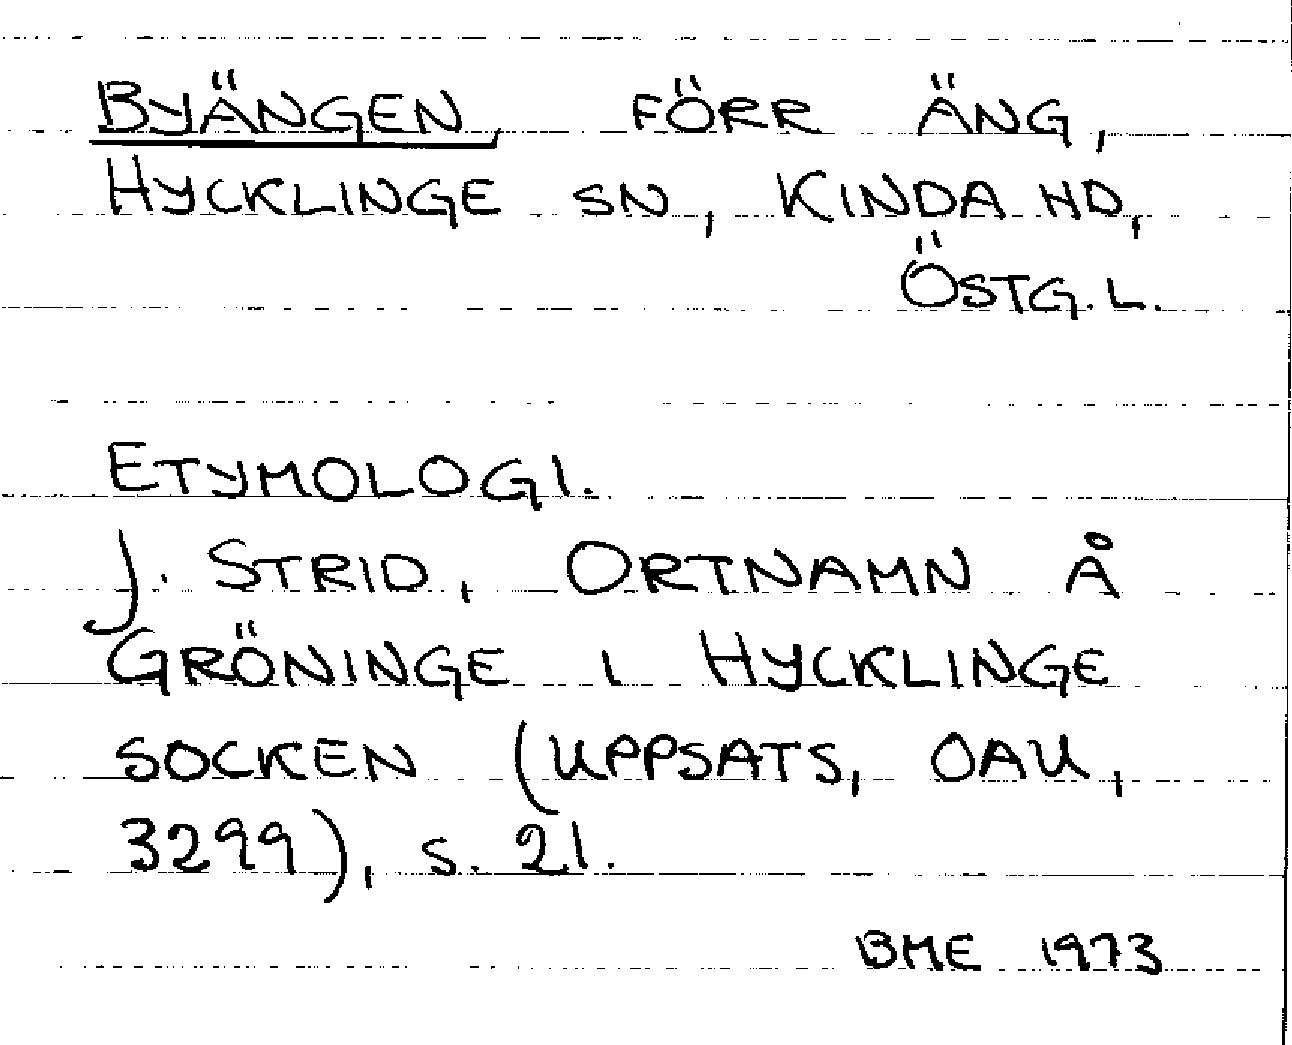 BYÄNGEN, FÖRR ÄNG,
HYCKLINGE SN, KINDA HD,
ÖSTG. L.
ETYMOLOGI.
J. STRID, ORTNAMN Å
GRÖNINGE I HYCKLINGE
SOCKEN (UPPSATS, OAU,
3299), S. 21.
BME 1973